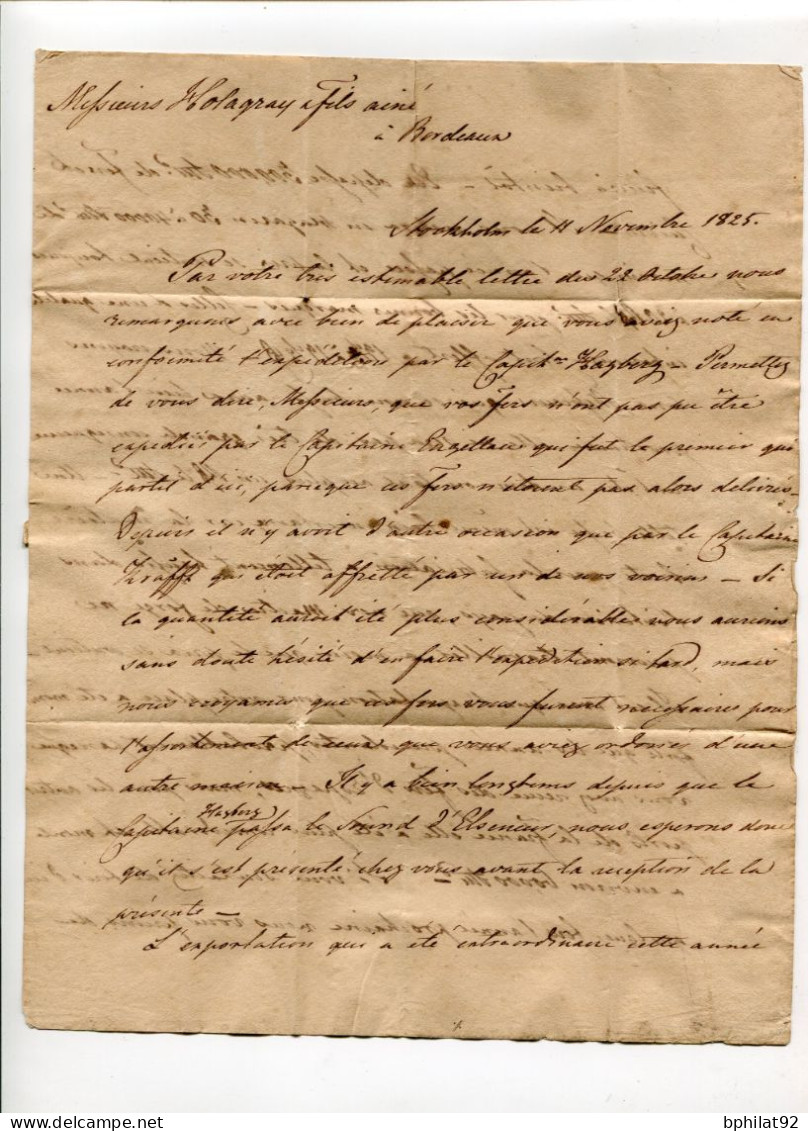 Messieurs Holagray & Fils ainé
à Bordeaux
Stockholm le 11 Novembre 1825.
Par votre tres estimable lettre des 22 Octobre nous
remarquons avec bien de plaisir que vous aviez noté en
conformité l'expedition par le Capitne Hagberg – Permettez
de vous dire, Messieurs, que vos fers n'ont pas pu être
expediés par le Capitaine qui fut le premier qui
partit d'ici, parceque ces Fers n'étoient pas alors delivrés –
Depuis il n'y avoit d'autre occasion que par le Capitaine
qui étoit affretté par un de nos voisins – Si
la quantité auroit été plus considérable nous aurions
sans doute hésité d'en faire l'expédition si tard, mais
nous croyames que ces fers vous furent nécessaires pour
l'assortiment de ceux que vous aviez ordonnés d'une
autre maison – Il y a bien longtems depuis que le
Hagberg
Capitaine passa le Sound d'Elseneur, nous esperons donc
qu'il s'est présenté chez vous avant la reception de la
présente –
L'exportation qui a été extraordinaire cette année
bphilat92